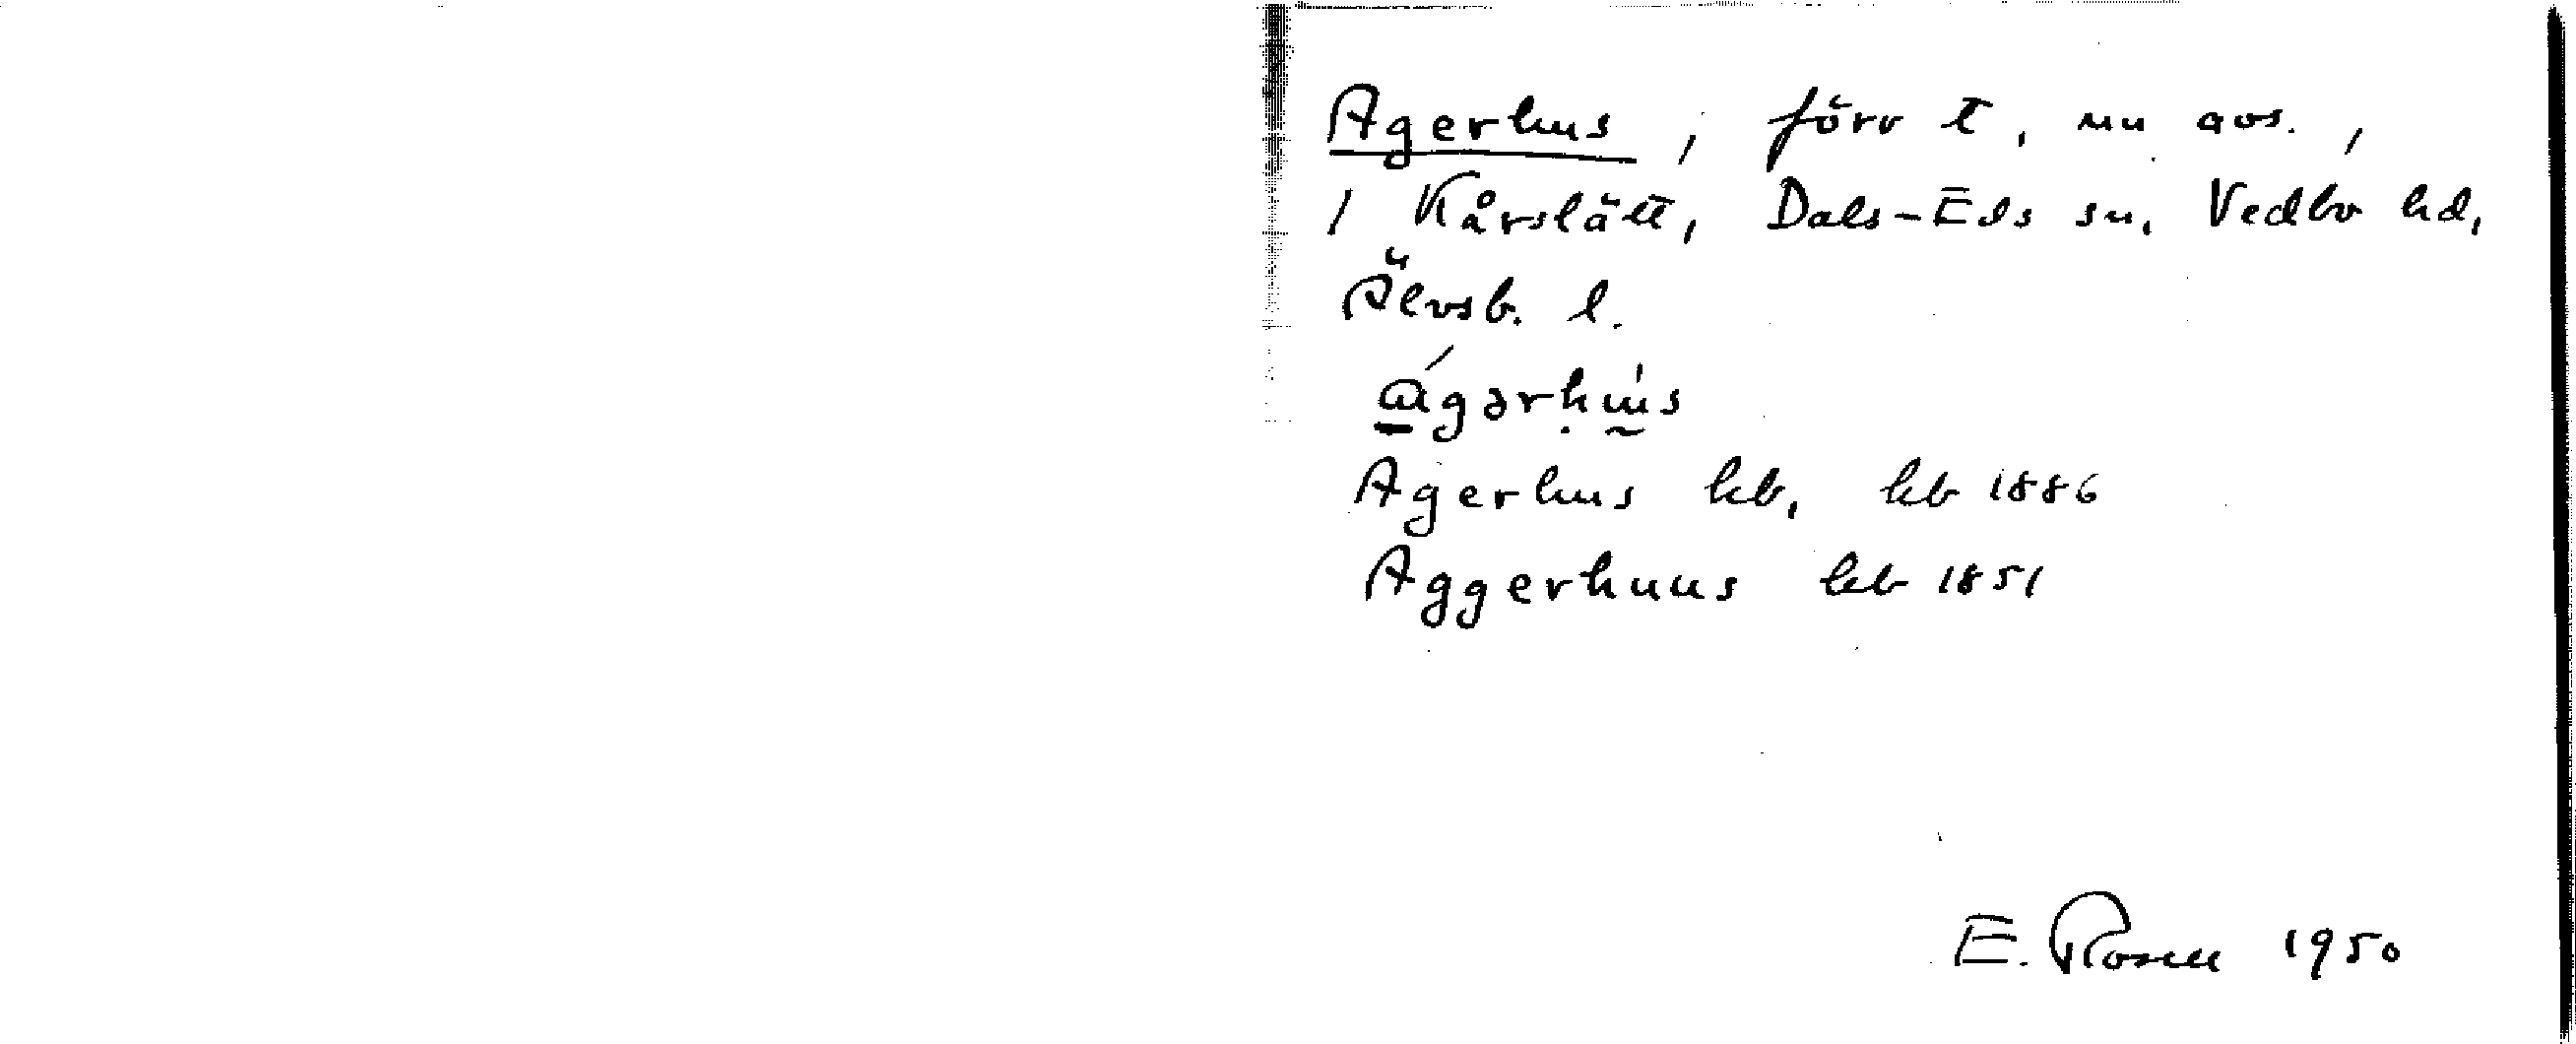 Agerhus, förr t, nu avs.,
/ Kårslätt, Dals-Eds sn, Vedbo hd,
Älvsb. l.
ágərhu̍s
Agerhus kb, kb 1886
Aggerhuus kb 1851
E. Rosell 1950